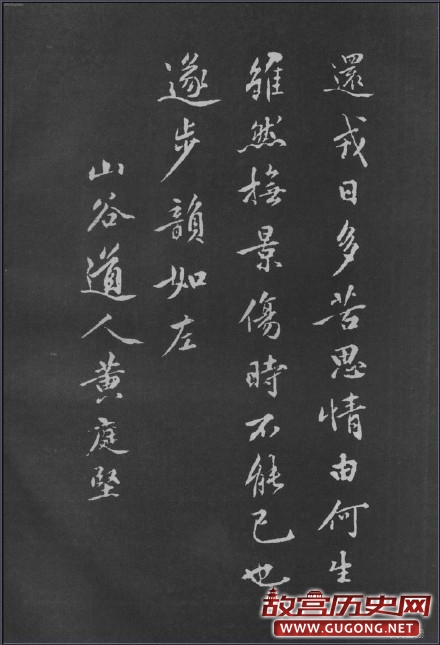 還戎日多苦思情由何生
雖然撫景傷時不能已也
遂步韻如左
山谷道人黃庭堅
故宫历史网
WWW.GUGONG.NET